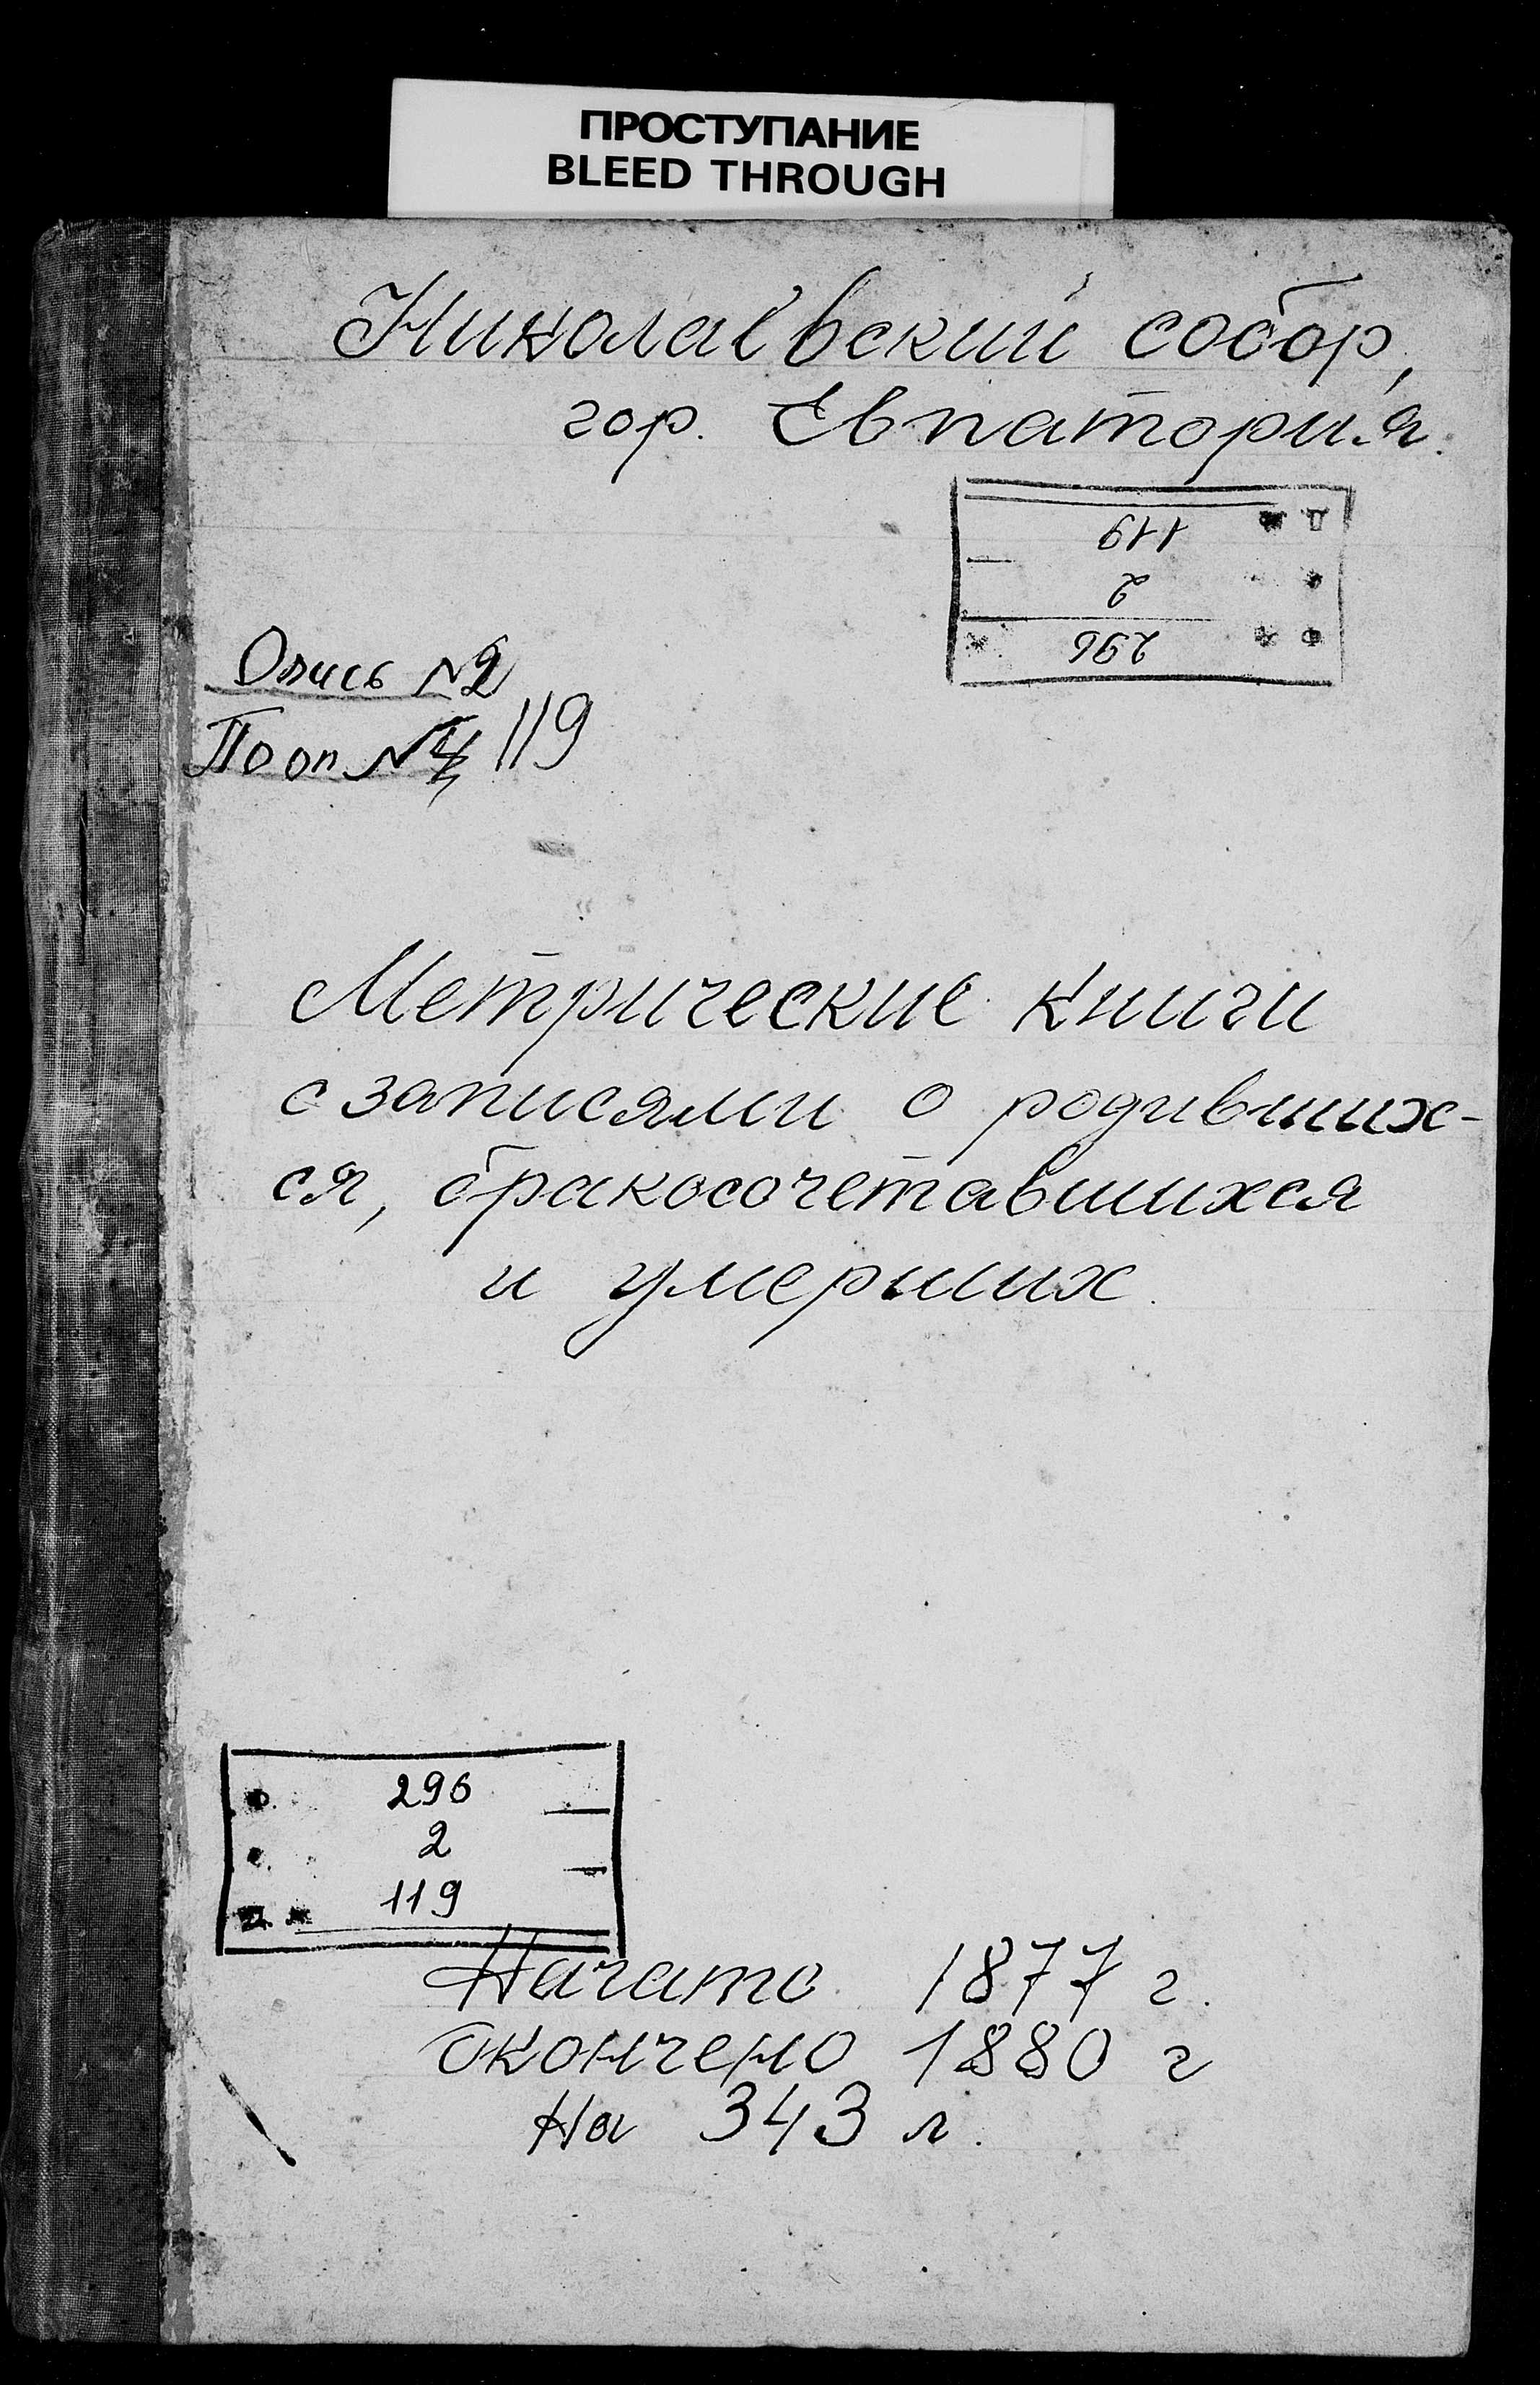 ПРОСТУПАНИЕ
BLEED THROUGH
Николаевский собор,
гор. Евпатория.
119
2
296
Опись №2
По оп №4 119
Метрические книги
с записями о родивших-
ся, бракосочетавшихся
и умерших.
296
2
119
Начато 1877 г.
окончено 1880 г
На 343 л.